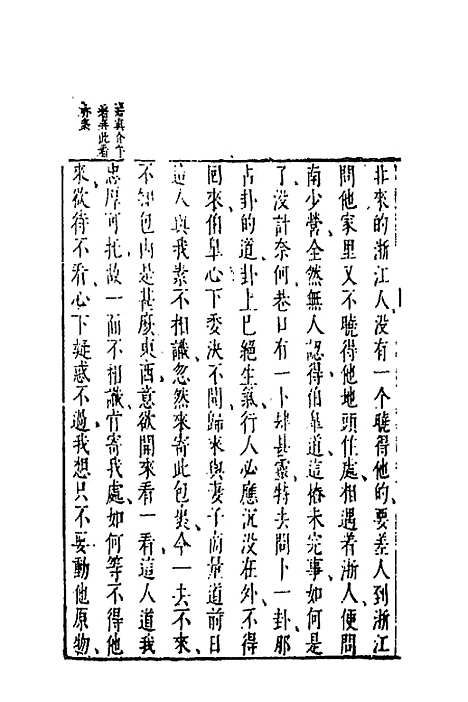 非來的浙江人没有一个曉得他的要差人到浙江
問他家里又不曉得他地頭住處相遇着浙人便問
南少營全然無人認得伯皐道這樁未完事如何是
了没計奈何巷口有一卜肆甚靈特去問卜一卦那
占卦的道卦上已絕生氣行人必應沉没在外不得
回來伯皐心下委決不開歸來與妻子商量道前日
這人與我素不相識忽然來寄此包裹今一去不來
不知包内是甚麼東西意欲開來看一看這人道我
忠厚可托故一面不相識肯寄我處如何等不得他
來欲待不看心下疑惑不過我想只不要動他原物